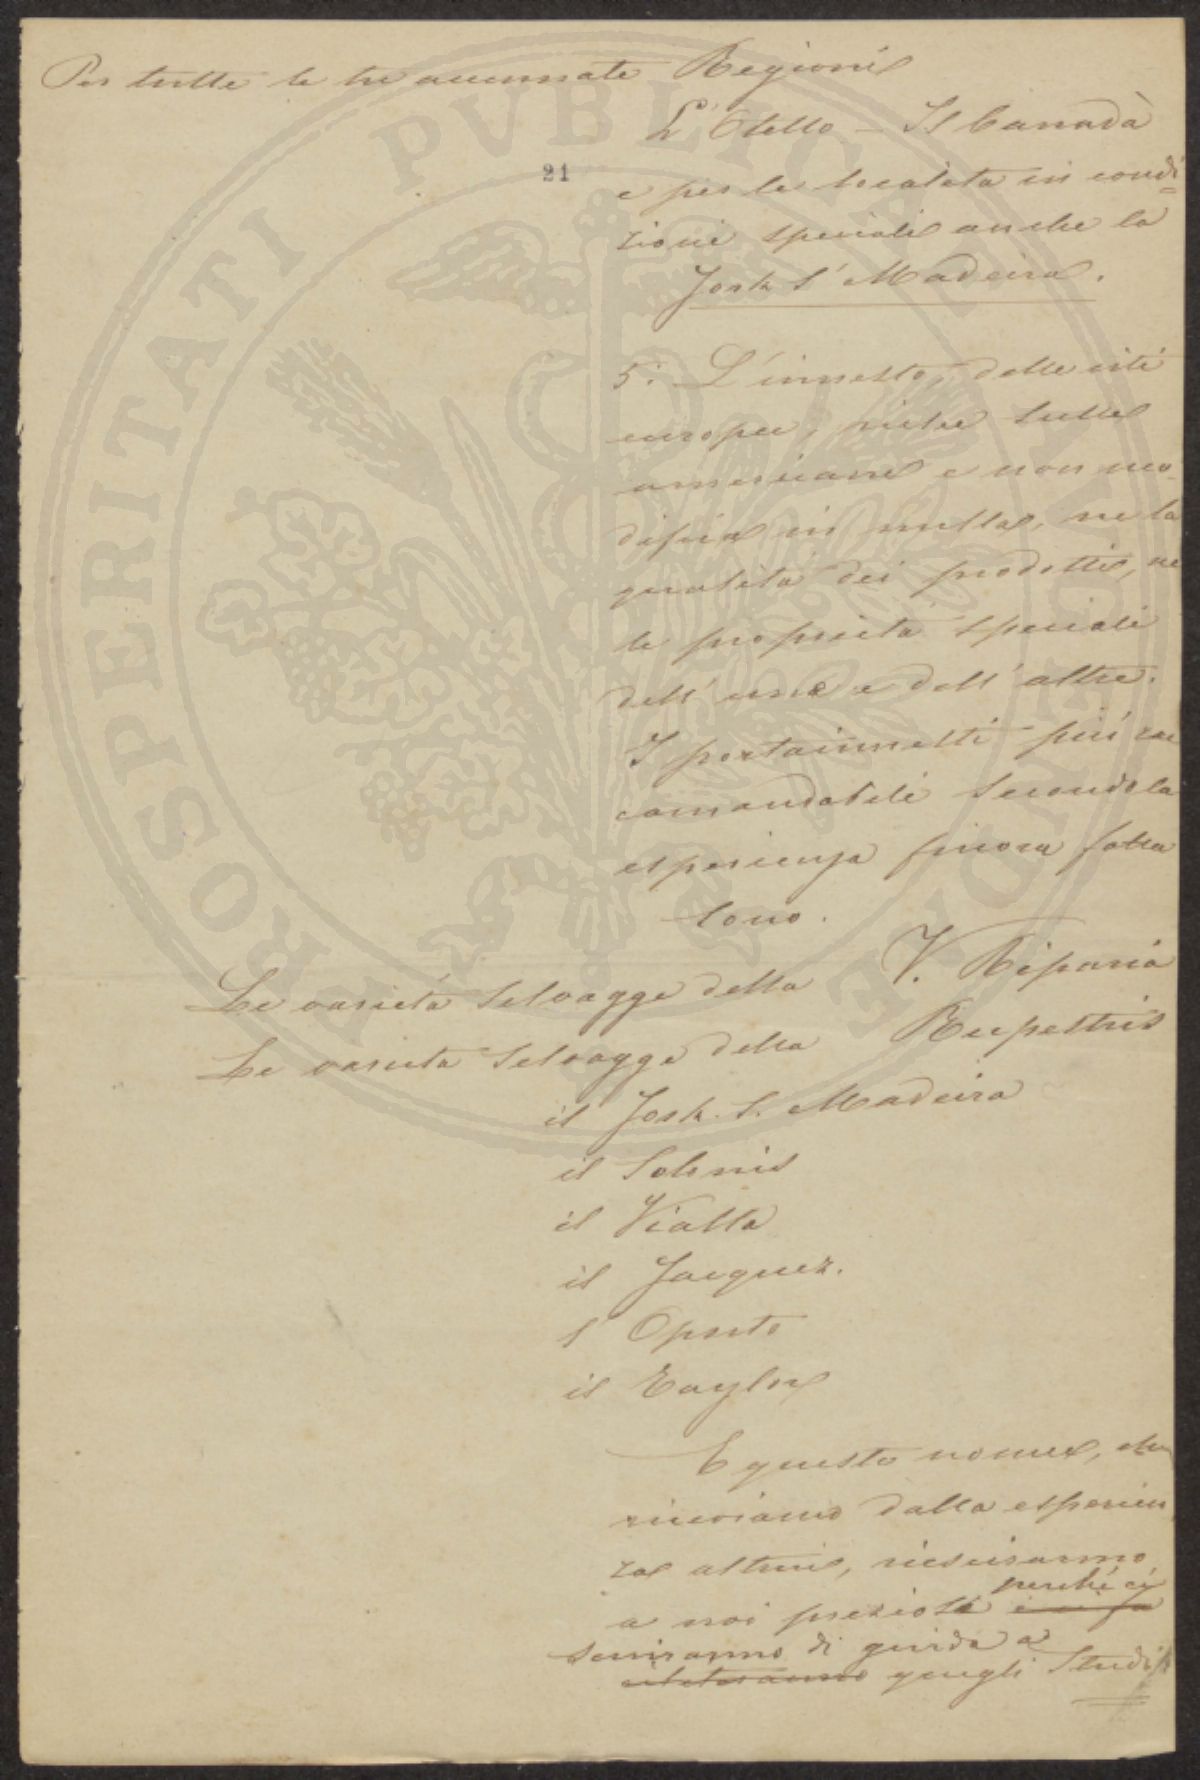 Per tutte le tre accennate Regioni
L'Otello - Il Canadà
21
e per le località in condi=
zioni speciali anche la
York S! Madeira.
5°. L'innesto, delle viti
europee, sulle
americane e non mo-
difica in nulla, ne la
qualità dei prodotti, ne
le proprietà speciali
dell'une e dell'altre.
I portainnesti più rac
comandabili secondo la
esperienza finora fatta
sono.
Le varietà selvagge della V. Riparia
Le varietà selvagge della Rupestris
il York. S. Madeira
il Solonis
il Vialla
il Jacquez.
l'Oporto
il Taylor
E queste nome, che
riceviamo dalla esperien
za altrui, riesciranno
perché ci
a noi preziose
serviranno di guida a
quegli Studi
PROSPERITATI PVBLICAE AVGENDAE